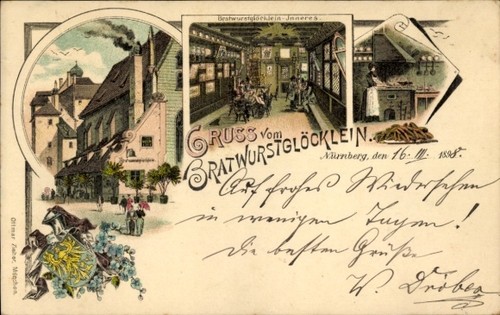 Bratwurstglöcklein-Inneres.
GRUSS vom
BRATWURSTGLÖCKLEIN.
Nürnberg, den 16. III. 1898.
Auf frohes Wiedersehen
in wenigen Tagen!
Die besten Grüße
W.
Ottmar Zieher, München